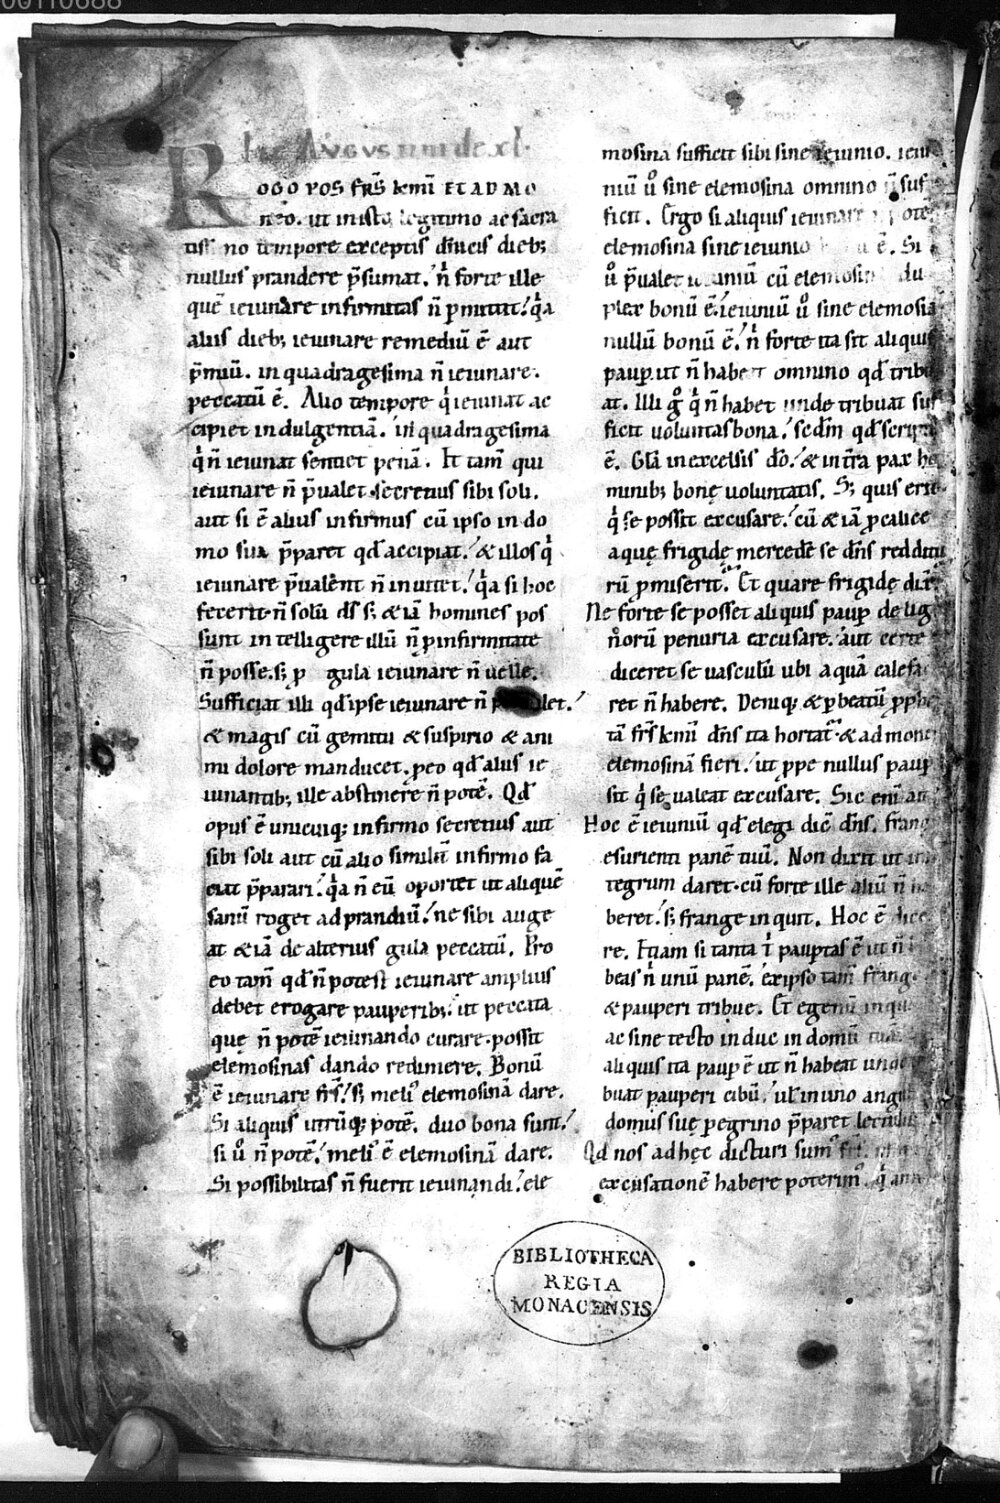 00110688
Augustini de xl.
ROGO VOS frs̄ kmī ET ADMO
neo. ut in isto legitimo ac sacra
tissimo tempore exceptis dn̄icis dieb;
nullus prandere p̄sumat. n̄ forte ille
quē ieiunare infirmitas n̄ pmittit. q̄a
aliis dieb; ieiunare remediū ē aut
p̄miū. in quadragesima n̄ ieiunare.
peccatū ē. Alio tempore q̇ ieiunat ac
cipiet indulgentiā. in quadragesima
q̇ n̄ ieiunat sentiet penā. Et tam̄ qui
ieiunare n̄ p̄ualet secretius sibi soli.
aut si ē alius infirmus cū ipso in do
mo sua p̄paret qd̄ accipiat. & illos q̇
ieiunare p̄ualent n̄ inuitet. q̄a si hoc
fecerit n̄ solū ds̄ s; & iā homines pos
sunt intelligere illū n̄ p infirmitate
n̄ posse. s; p gula ieiunare n̄ uelle.
Sufficiat illi qd̄ ipse ieiunare n̄ let.
& magis cū gemitu & suspirio & ani
mi dolore manducet. p eo qd̄ aliis ie
iunantib; ille abstinere n̄ potē. Qd̄
opus ē unicuiq; infirmo secretius aut
sibi soli aut cū alio similit̄ infirmo fa
ciat p̄parari. q̄a n̄ eū oportet ut aliquē
sanū roget ad prandiū. ne sibi auge
at & iā de alterius gula peccatū. Pro
eo tam̄ qd̄ n̄ potest ieiunare amplius
debet erogare pauperib; ut peccata
que n̄ potē ieiunando curare possit
elemosinas dando redimere. Bonū
ē ieiunare frs̄. s; meli᾿ elemosinā dare.
Si aliquis utrūq; potē. duo bona sunt.
si ů n̄ potē. meli᾿ ē elemosinā dare.
Si possibilitas n̄ fuerit ieiunandi. ele
mosina sufficit sibi sine ieiunio. ieiu
niū ů sine elemosina omnino n̄ suf
ficit. Ergo si aliquis ieiunare potē
elemosina sine ieiunio ē. Si
ů p̄ualet ieiuniū cū elemosina du
plex bonū ē. ieiuniū ů sine elemosia
nullū bonū ē. n̄ forte ita sit aliquis
paup. ut n̄ habeat omnino qd̄ tribu
at. Illi g̊ q̇ n̄ habet unde tribuat suf
ficit uoluntas bona. scd̄m qd̄ scriptū
ē. Glā in excelsis dō. & in tr̄a pax ho
minib; bone uoluntatis. S; quis erit
q̇ se possit excusare. cū & iā p calice
aque frigide mercedē se dn̄s redditu
rū pmiserit. Et quare frigide dix̄.
Ne forte se posset aliquis paup de lig
noru penuria excusare. aut certe
diceret se uasculū ubi aquā calefa
ret n̄ habere. Deniq; & p beatū pph̄e
tā frs̄ kmī dn̄s ita hortat̄ & admonet
elemosinā fieri. ut ppe nullus paup
sit q̇ se ualeat excusare. Sic enī ait
Hoc ē ieiuniū qd̄ elegi dic̄ dn̄s. frange
esurienti panē tuū. Non dixit ut in
tegrum daret. cū forte ille aliū n̄ ha
beret. s; frange inquit. Hoc ē dice
re. Etiam si tanta t̄ paup̄tas ē ut n̄
beas n̄ unū panē. ex ipso tam̄ frange
& pauperi tribue. Et egenū inquit
ac sine tecto induc in domū tuā.
aliquis ita paup ē ut n̄ habeat unde
buat pauperi cibū. ul̄ in uno angulo
domus sue pegrino p̄paret lectulū
Qd̄ nos ad hec dicturi sum᾿ frs̄.
excusationē habere poterim᾿. q̇
BIBLIOTHECA
REGIA
MONACENSIS